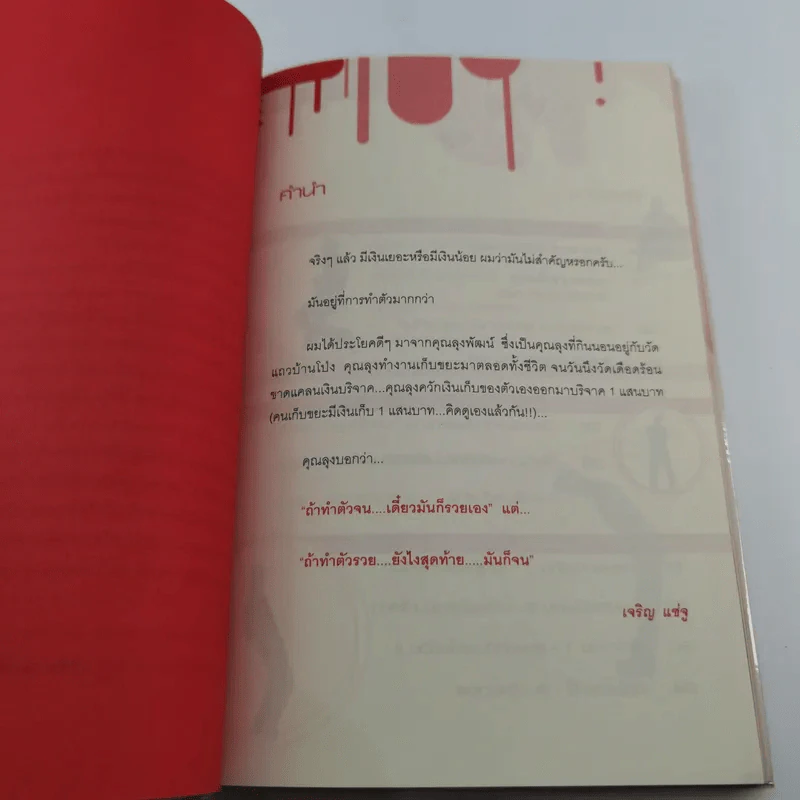 คำนำ
จริงๆ แล้ว มีเงินเยอะหรือมีเงินน้อย ผมว่ามันไม่สำคัญหรอกครับ...
มันอยู่ที่การทำตัวมากกว่า
ผมได้ประโยคดีๆ มาจากคุณลุงพัฒน์ ซึ่งเป็นคุณลุงที่กินนอนอยู่กับวัด
แถวบ้านโป่ง คุณลุงทำงานเก็บขยะมาตลอดทั้งชีวิต จนวันนึงวัดเดือดร้อน
ขาดแคลนเงินบริจาค...คุณลุงควักเงินเก็บของตัวเองออกมาบริจาค 1 แสนบาท
(คนเก็บขยะมีเงินเก็บ 1 แสนบาท...คิดดูเองแล้วกัน!!)...
คุณลุงบอกว่า...
"ถ้าทำตัวจน....เดี๋ยวมันก็รวยเอง" แต่...
"ถ้าทำตัวรวย....ยังไงสุดท้าย.....มันก็จน"
เจริญ แซ่จู